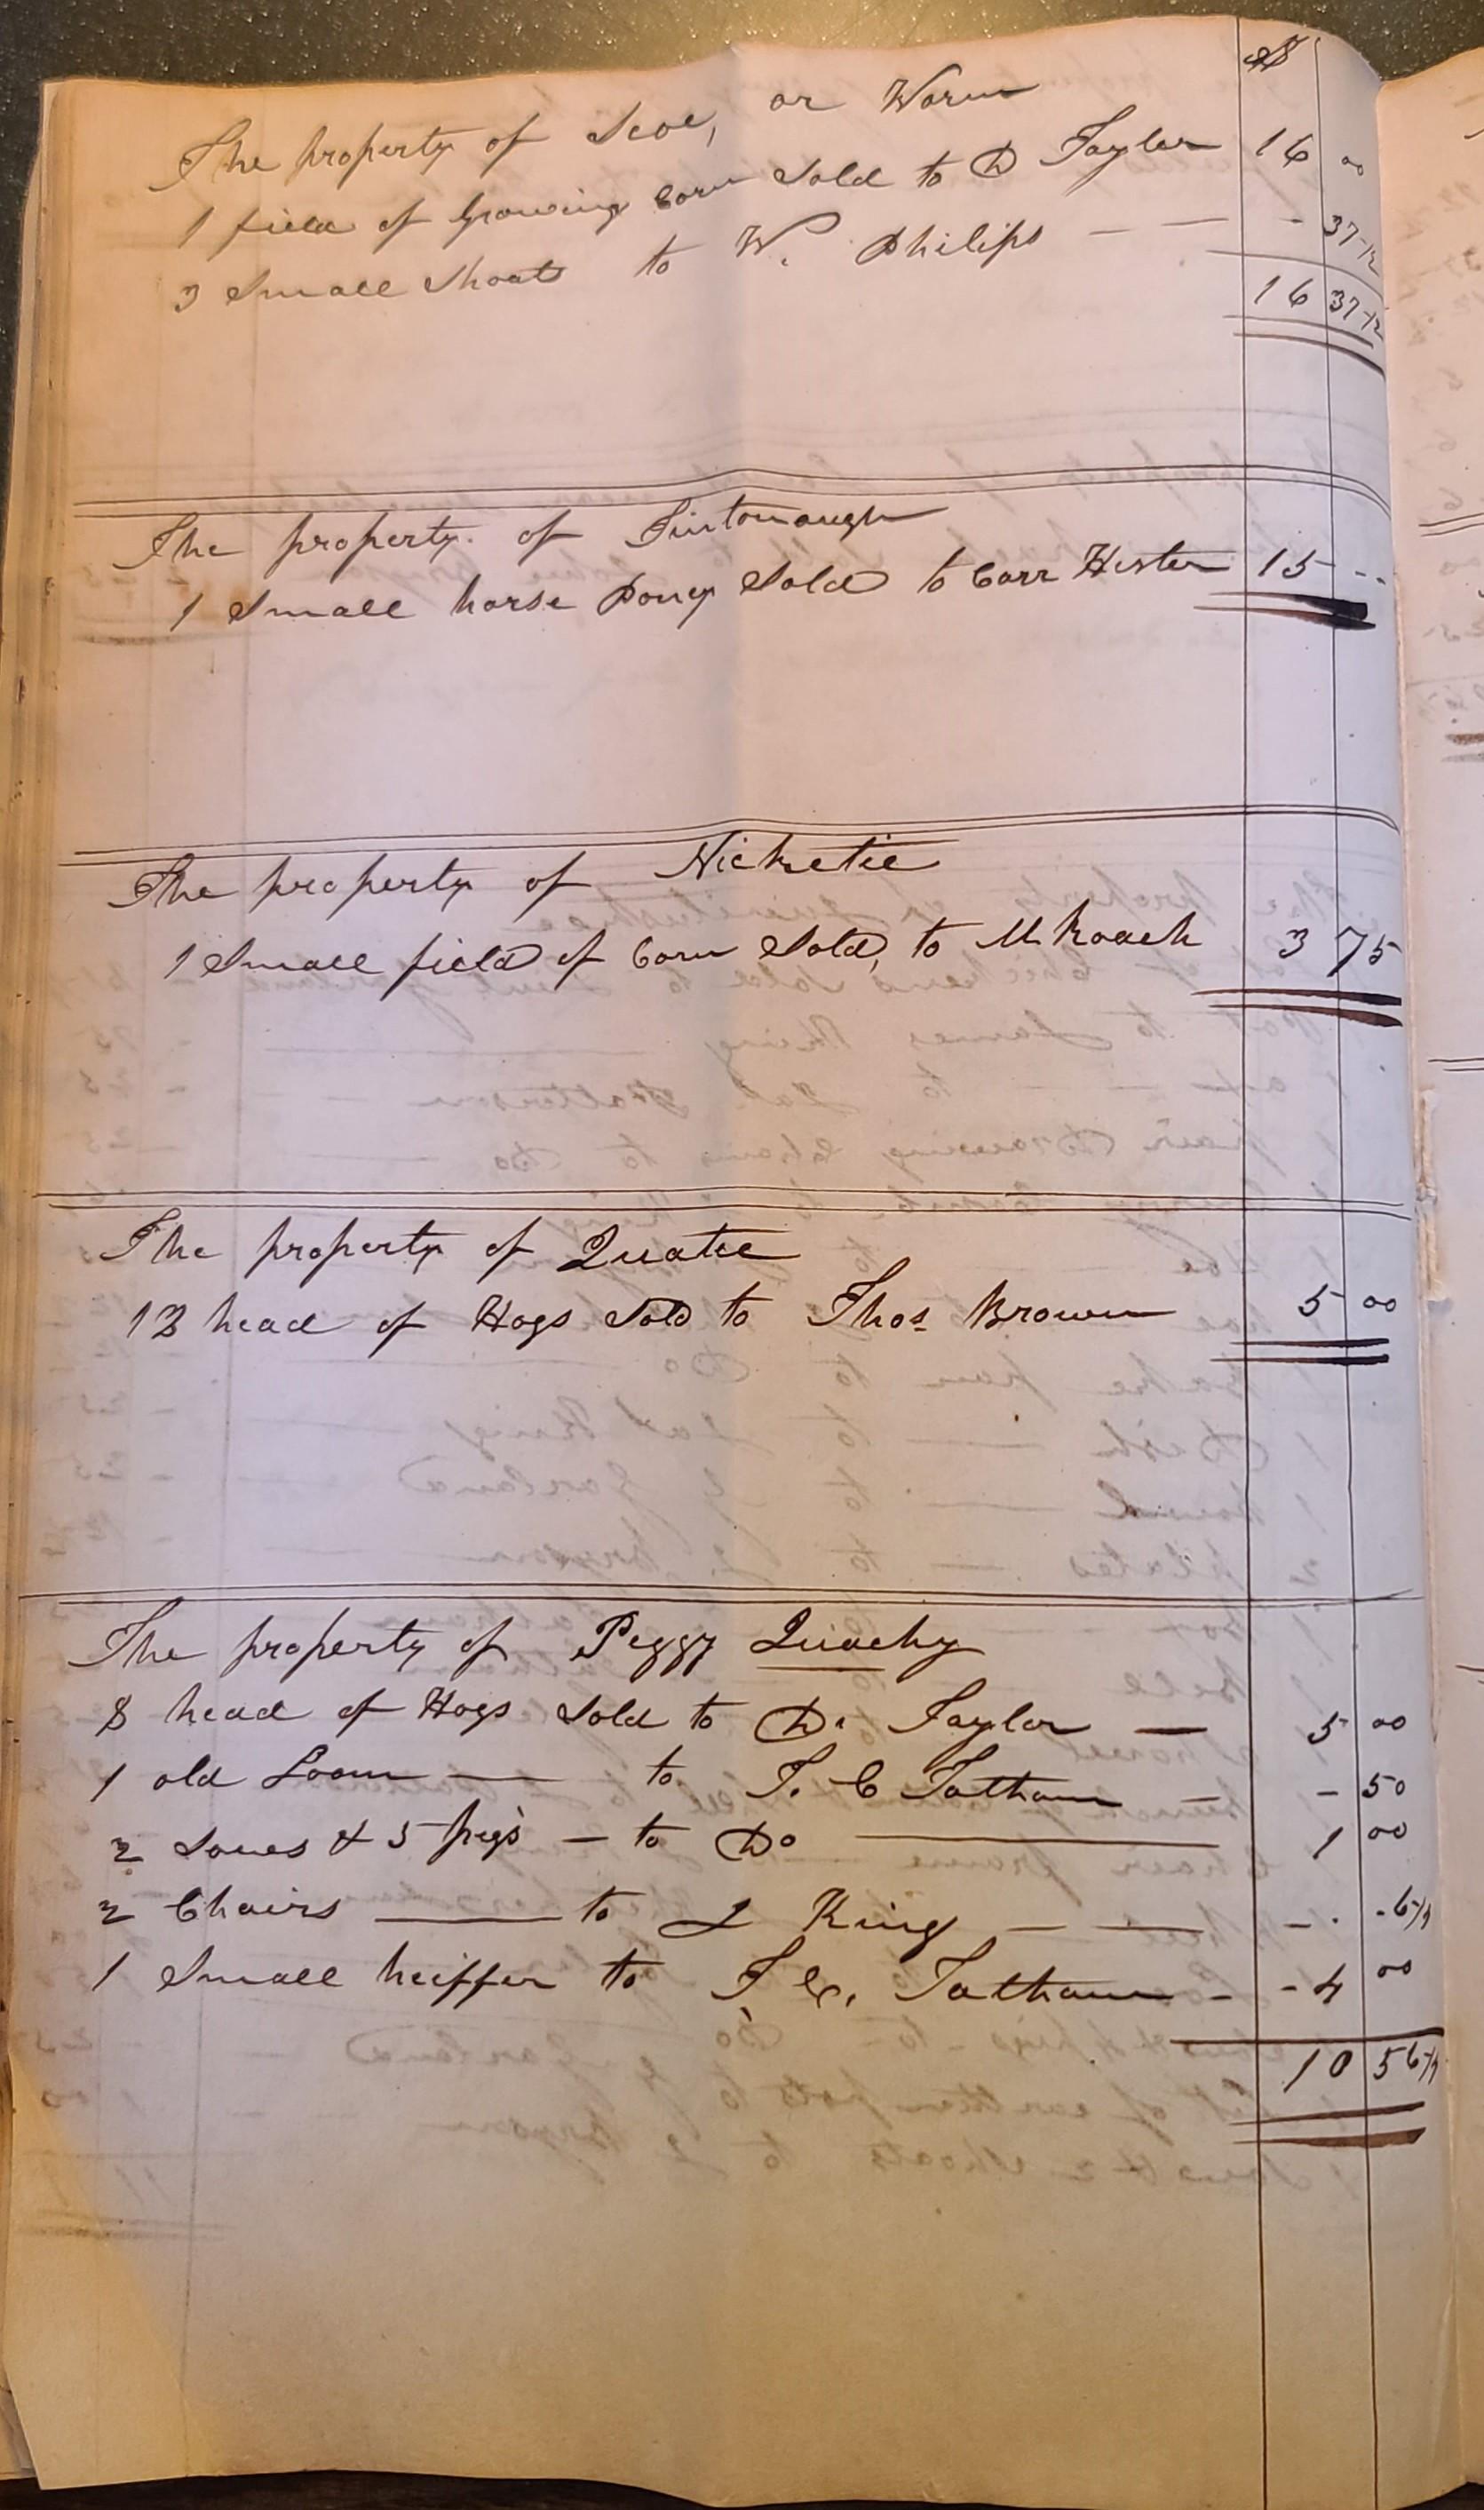 $
The property of Scoe, or Worm
1 field of Growing Corn Sold to D Taylor 16 00
3 Small Shoats to W. Philips — — - 37-½
16 37-½
The property of Tintonaugh
1 Small horse Poney Sold to Carr Hester 15 --
The property of Nicketie
1 Small field of Corn Sold, to M Roach 3 75
The property of Quatee
13 head of Hogs Sold to Thos Brown 5 00
The property of Peggy Quachy
8 head of Hogs Sold to D. Taylor — 5 00
1 old Loom — to T. C Tatham - 50
2 Sows & 5 pigs — to Do — 1 00
2 Chairs — to J King — — - . - 6-¼
1 Small heiffer to T. C. Tatham - - 4 00
10 56-¼